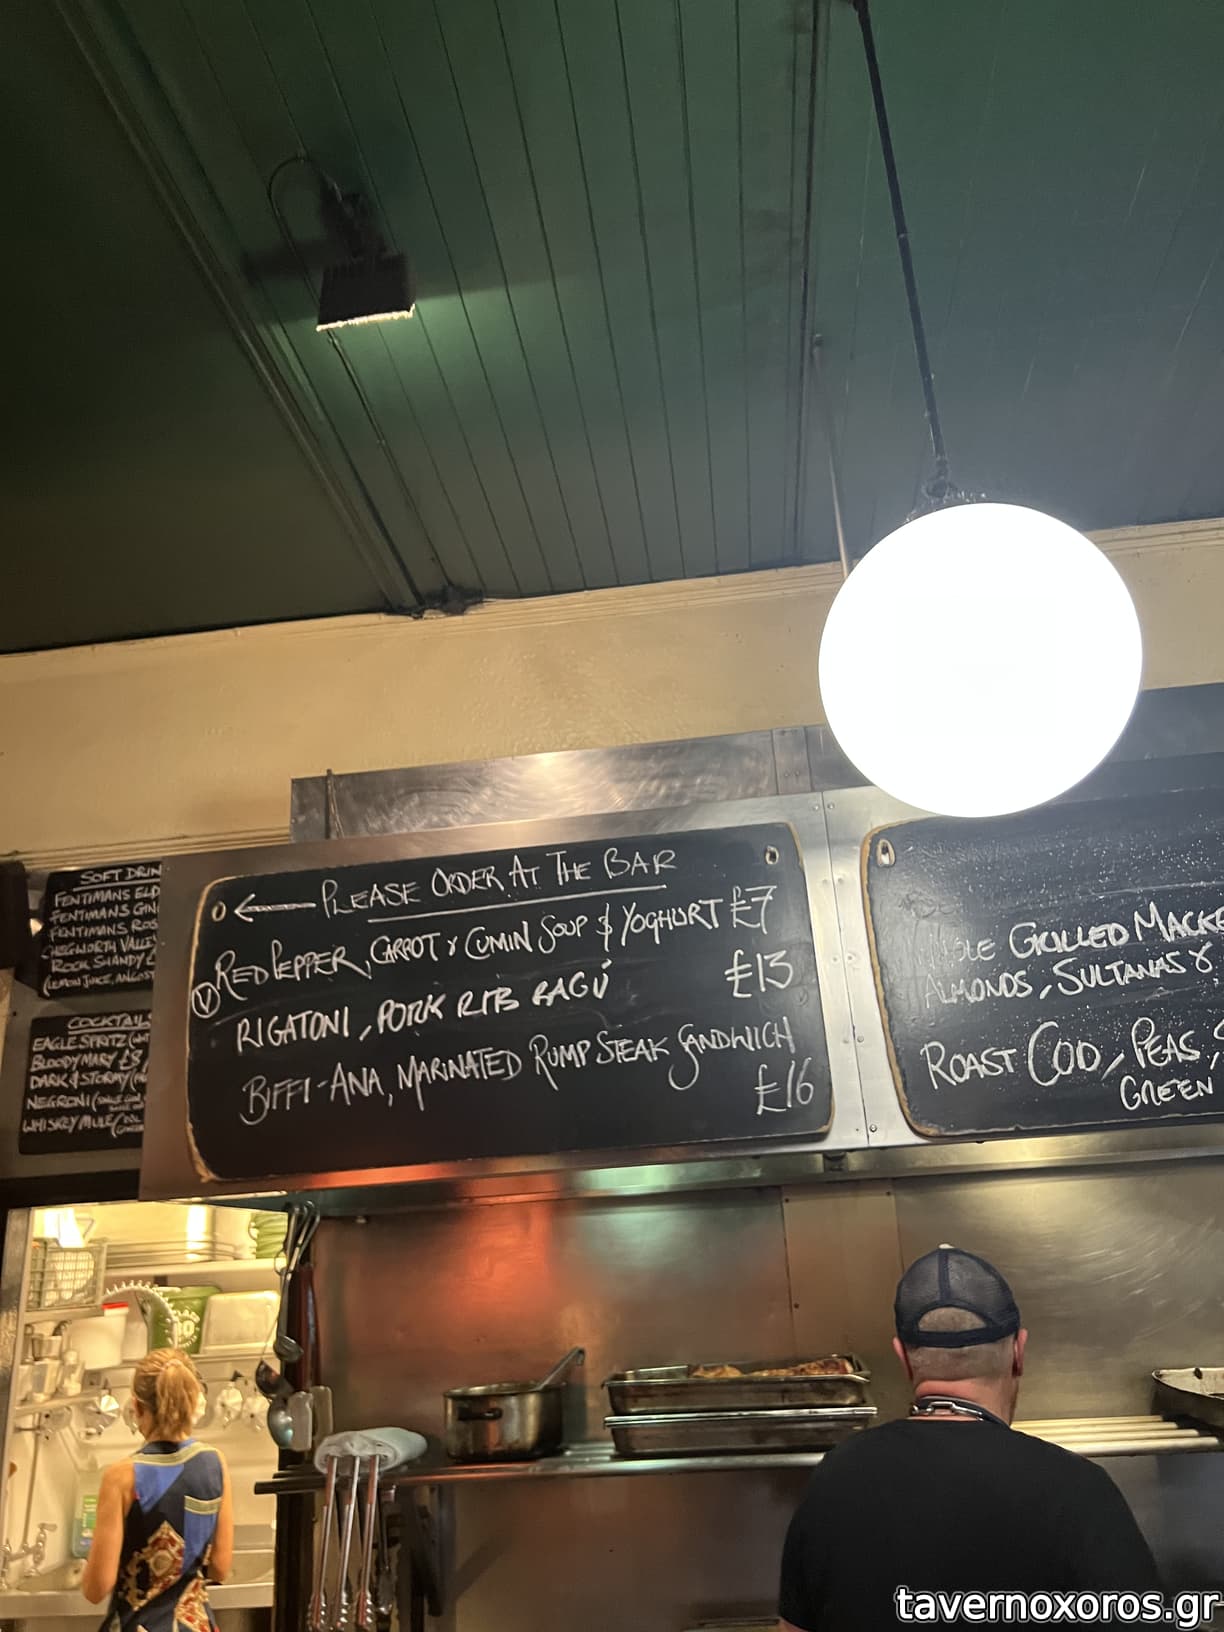 SOFT DRIN
FENTIMANS ELD
FENTIMANS GIN
FENTIMANS ROS
CHEGWORTH VALLEY
ROCK SHANDY £
(LEMON JUICE, ANGOST
COCKTAILS
EAGLE SPRITZ
BLOODY MARY £8
DARK & STORMY
NEGRONI
WHISKEY MULE
← PLEASE ORDER AT THE BAR
RED PEPPER, CARROT & CUMIN SOUP & YOGHURT £7
Ⓥ
RIGATONI, PORK RIB RAGÚ £13
BIFFI-ANA, MARINATED RUMP STEAK SANDWICH
£16
GRILLED MACKE
ALMONDS, SULTANAS &
ROAST COD, PEAS,
GREEN
tavernoxoros.gr